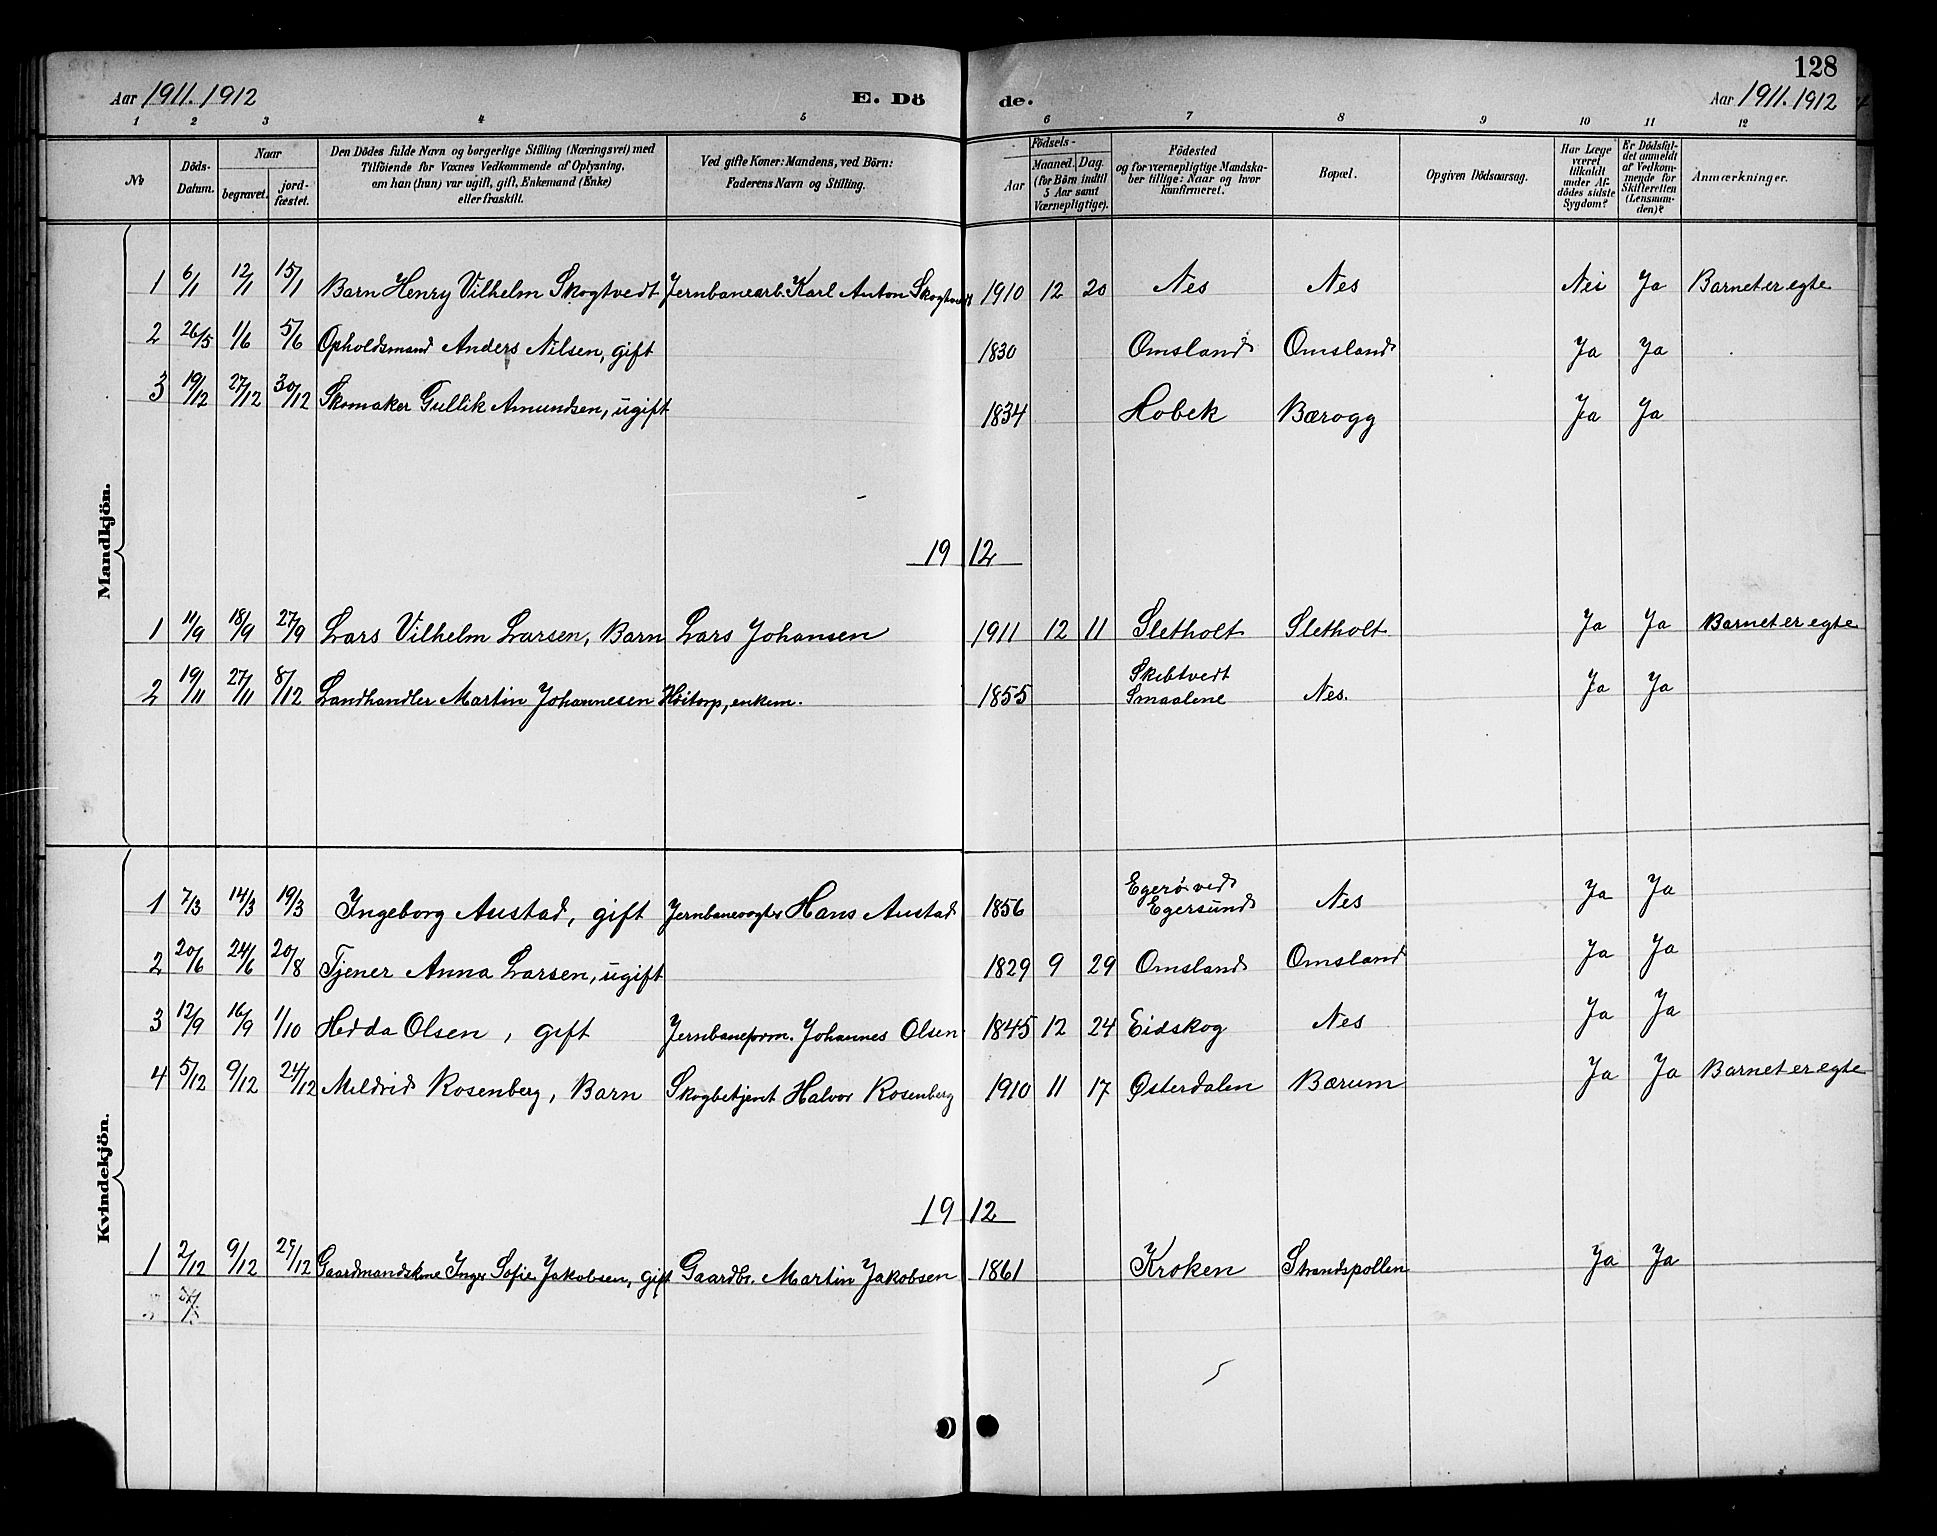 128
Aar 1911. 1912 E. Dö de. Aar 1911. 1912
1 2 3 4 5 6 7 8 9 10 11 12
No
Döds-
Datum.
Naar
begravet.
jord-
fæstet.
Den Dödes fulde Navn og borgerlige Stilling (Næringsvei) med
Tilföiende for Voxnes Vedkommende af Oplysning,
om han (hun) var ugift, gift, Enkemand (Enke)
eller fraskilt.
Ved gifte Koner: Mandens, ved Börn:
Faderens Navn og Stilling.
Födsels-
Aar
Maaned. Dag.
(for Börn indtil
5 Aar samt
Værnepligtige).
Födested
og for værnepligtige Mandska-
ber tillige: Naar og hvor
konfirmeret.
Bopæl.
Opgiven Dödsaarsag.
Har Læge
været
tilkaldt
under Af-
dödes sidste
Sygdom?
Er Dödsfal-
det anmeldt
af Vedkom-
mende for
Skifteretten
(Lensman-
den)?
Anmærkninger.
Mandkjön.
1 6/1 12/1 15/1 Barn Henry Vilhelm Skogtvedt Jernbanearb. Karl Anton Skogtvedt 1910 12 20 Nes Nes Nei Ja Barnet er egte
2 26/5 1/6 5/6 Opholdsmand Anders Nilsen, gift 1830 Omsland Omsland Ja Ja
3 19/12 27/12 30/12 Skomaker Gullik Amundsen, ugift 1834 Hobek Bærogg Ja Ja
19 12
1 11/9 18/9 27/9 Lars Vilhelm Larsen, Barn Lars Johansen 1911 12 11 Sletholt Sletholt Ja Ja Barnet er egte
2 19/11 27/11 8/12 Landhandler Martin Johannesen Höitorp, enkem. 1855 Skibtvedt
Smaalene Nes. Ja Ja
Kvindekjön.
1 7/3 14/3 19/3 Ingeborg Austad, gift Jernbanevogter Hans Austad 1856 Egerö ved
Egersund Nes Ja Ja
2 20/6 24/6 20/8 Tjener Anna Larsen, ugift 1829 9 29 Omsland Omsland Ja Ja
3 12/9 16/9 1/10 Hedda Olsen, gift Jernbaneform. Johannes Olsen 1845 12 24 Eidskog Nes Ja Ja
4 5/12 9/12 24/12 Mildrid Rosenberg, Barn Skogbetjent Halvor Rosenberg 1910 11 17 Østerdalen Bærum Ja Ja Barnet er egte
19 12
1 2/12 9/12 29/12 Gaardmandskone Inger Sofie Jakobsen, gift Gaardbr. Martin Jakobsen 1861 Kroken Strandspollen Ja Ja